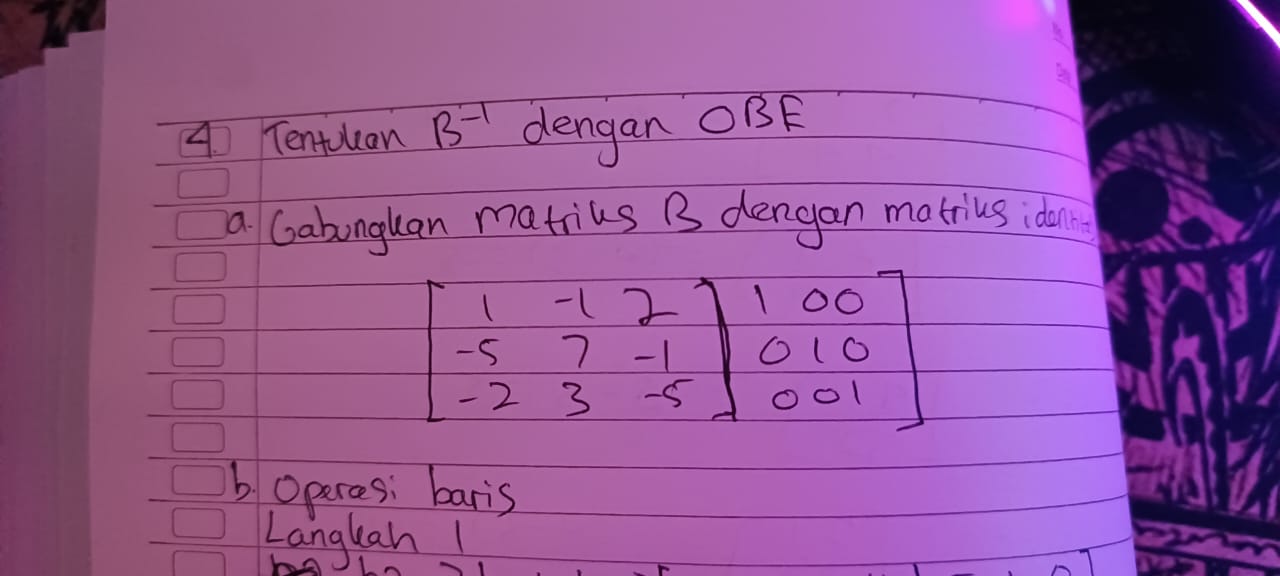 4. Tentukan B⁻¹ dengan OBE
a. Gabungkan matriks B dengan matriks
1 -1 2 1 0 0
-5 7 -1 0 1 0
-2 3 -5 0 0 1
b. Operasi baris
Langkah 1